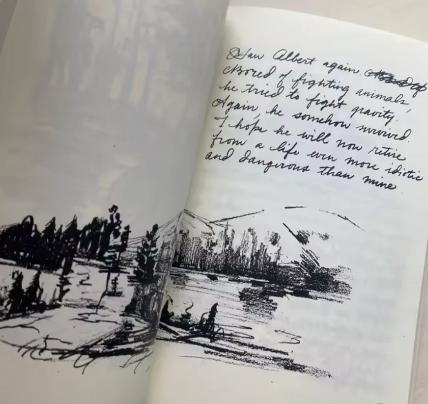 Saw Albert again.
Bored of fighting animals,
he tried to fight gravity.
Again, he somehow survived.
I hope he will now retire
from a life even more idiotic
and dangerous than mine